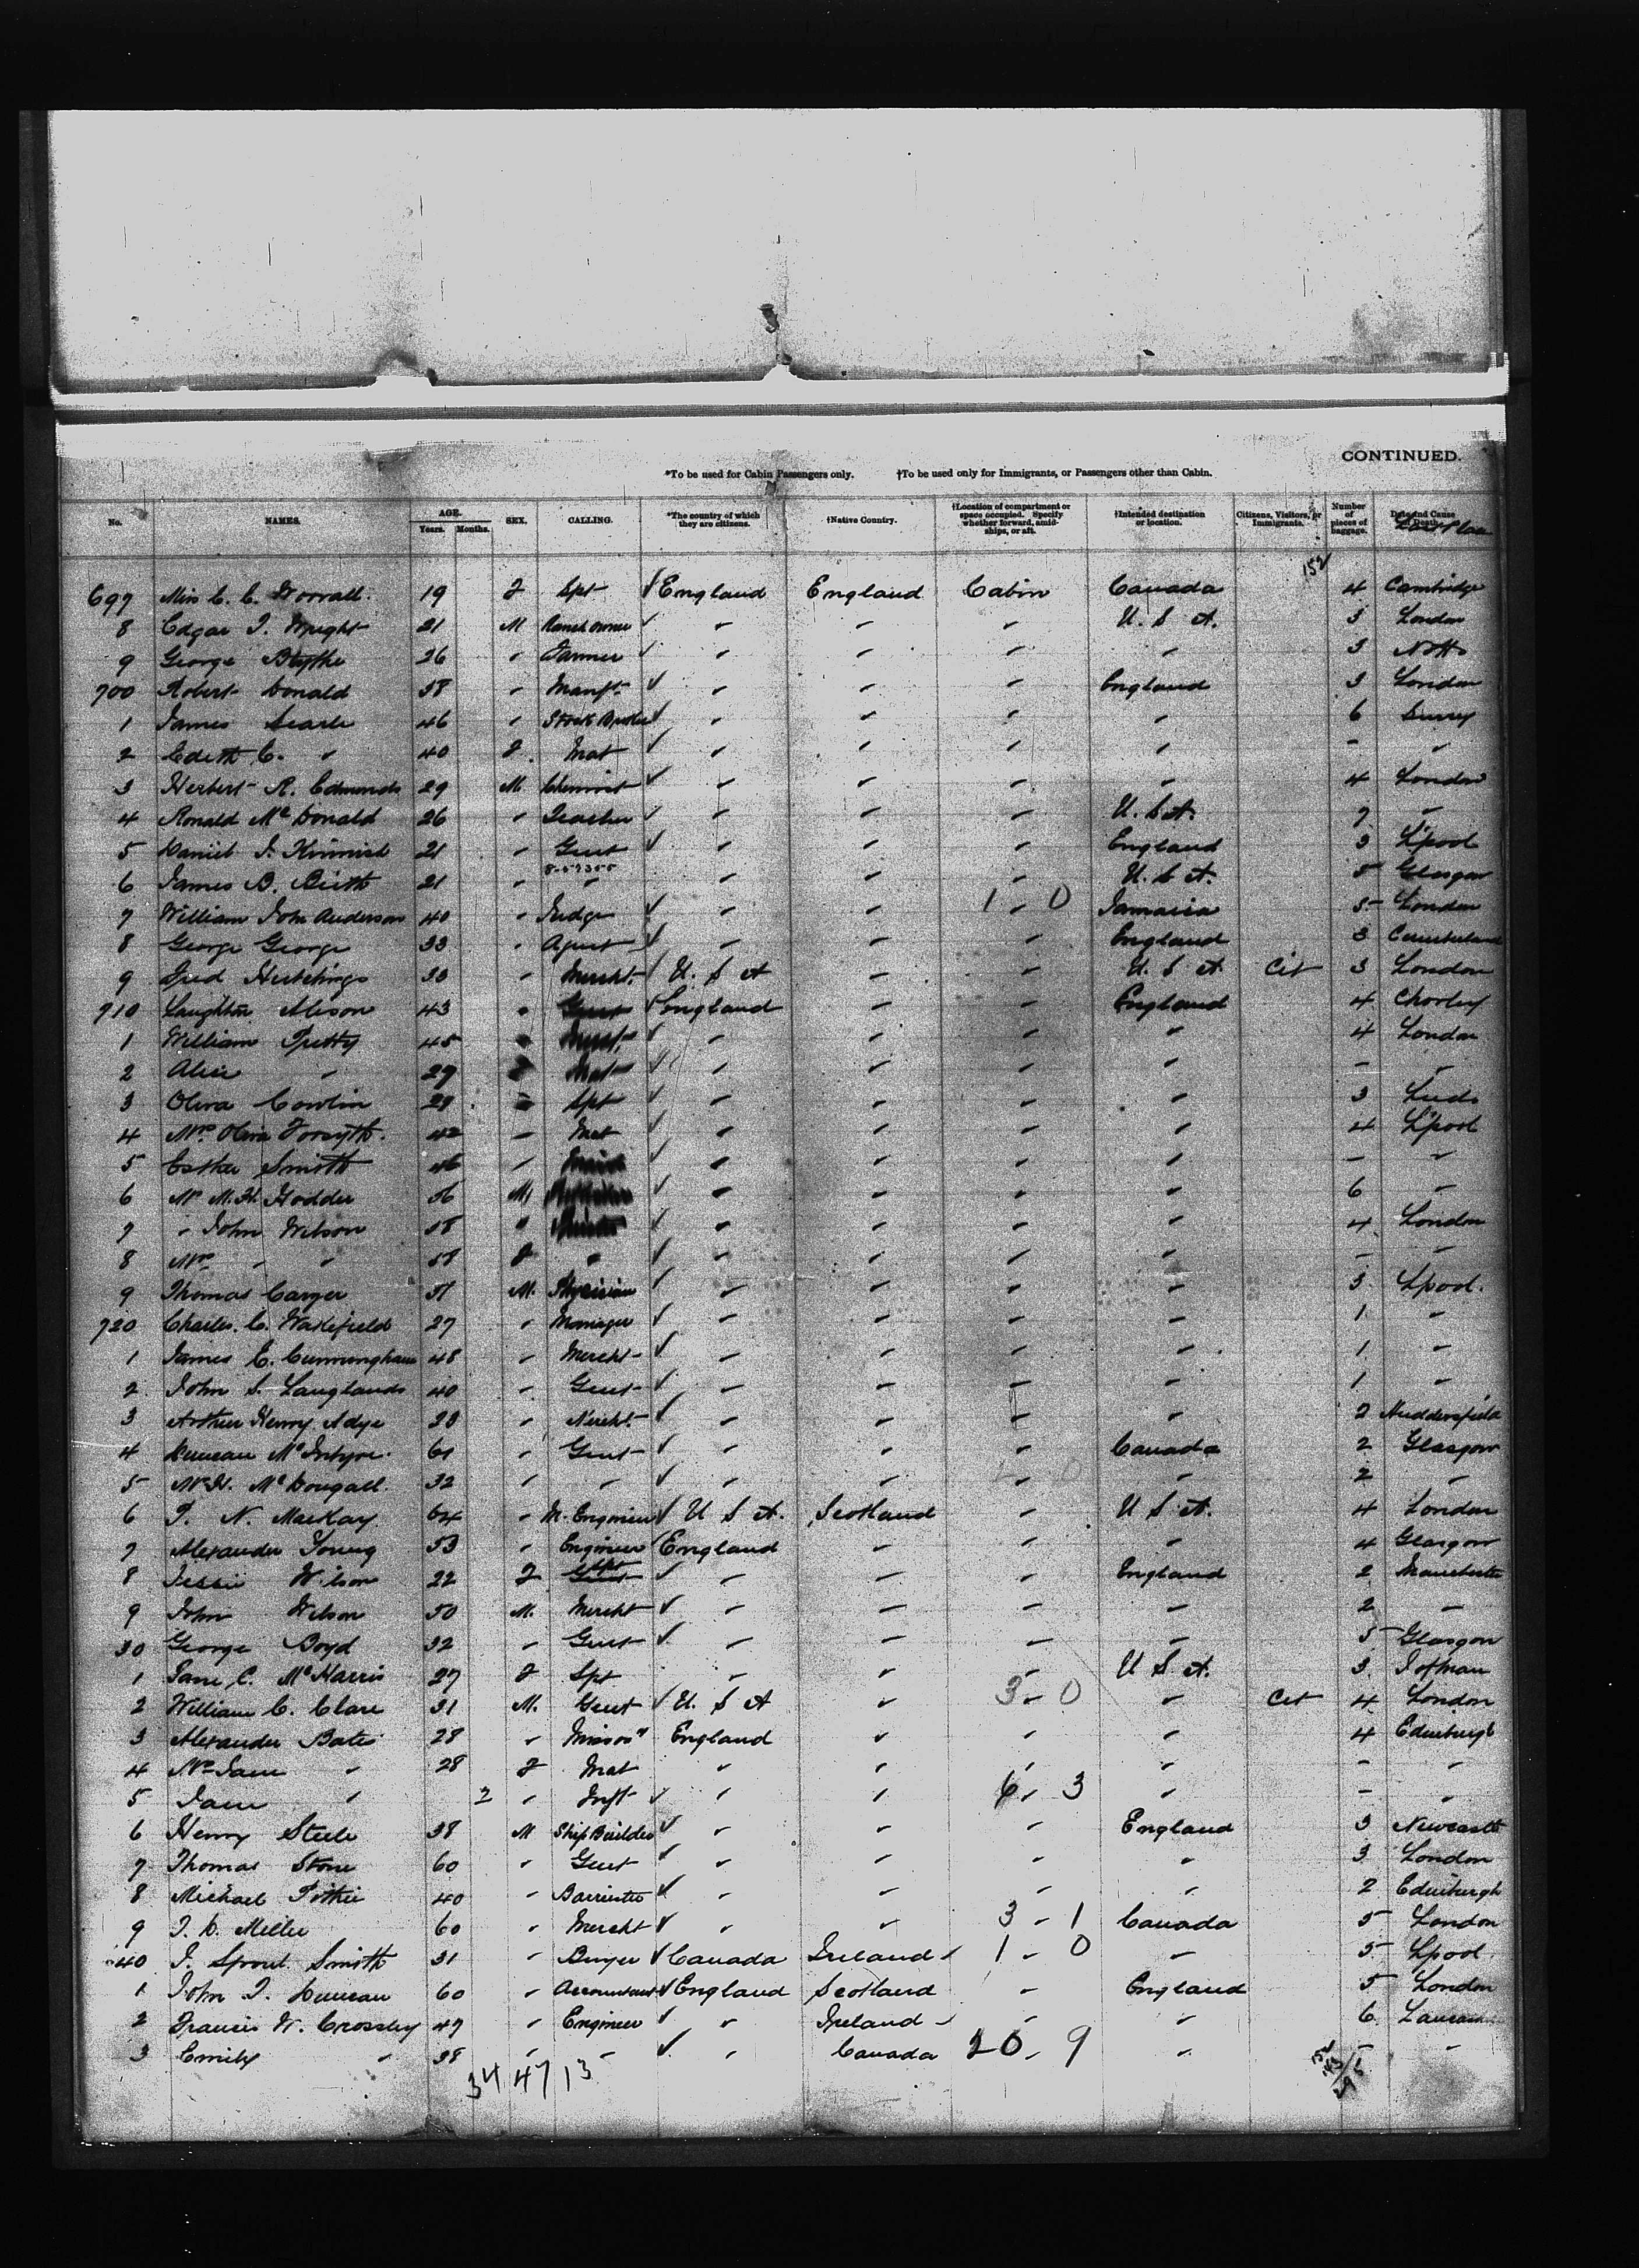 CONTINUED.
*To be used for Cabin Passengers only. †To be used only for Immigrants, or Passengers other than Cabin.
No. NAMES. AGE. Years. Months. SEX. CALLING. *The country of which they are citizens. †Native Country. †Location of compartment or space occupied. Specify whether forward, amidships, or aft. †Intended destination or location. Citizens, Visitors, or Immigrants. Number of pieces of baggage. Date and Cause of Death. Last Place
152
697 Miss C. C. Worrall. 19 F Spt ✓ England England Cabin Canada 4 Cambridge
8 Edgar T. Wright 21 M Ranch owner ✓ " " " U. S A. 3 London
9 George Blythe 26 " Farmer ✓ " " " " 3 Notts
700 Robert Donald 38 " Manfr ✓ " " " England 3 London
1 James Searle 46 " Stock Broker ✓ " " " " 6 Surrey
2 Edith C. " 40 F. Mat ✓ " " " " - "
3 Herbert R. Edmonds 29 M Chemist ✓ " " " " 4 London
4 Ronald McDonald 26 " Teacher ✓ " " " U. S A. 7 "
5 Daniel J. Kinnish 21 " Gent ✓ " " " England 3 L'pool
6 James B. 21 " " " " " U. S A. 5 Glasgow
7 William John Anderson 40 " Judge ✓ " " 1 - 0 Jamaica 5 London
8 George George 33 " Agent ✓ " " " England 3 Cumberland
9 Fred Hutchings 30 " Mercht. ✓ U. S A " " U. S A Cit 3 London
710 Laughton Alison 43 " Gent ✓ England " " England 4 Chorley
1 William Pretty 45 " ✓ " " " " 4 London
2 Alice " 29 Mat ✓ " " " " - "
3 Oliva Cowlin 29 " Spt ✓ " " " " 3 Leeds
4 Mrs Oliva Forsyth. 42 " Mat ✓ " " " " 4 L'pool
5 Esther Smith 46 " ✓ " " " " - "
6 Mr M. H. Hodder 56 M. ✓ " " " " 6 "
7 " John Wilson 58 " ✓ " " " " 4 London
8 Mrs " " 58 F " ✓ " " " " - -
9 Thomas Carger M. Physician ✓ " " " " 3 Lpool.
720 Charles. C. Wakefield 27 " Manager ✓ " " " " 1 "
1 James C. Cunningham 48 " Mercht ✓ " " " " 1 "
2 John S. Langlands 40 " Gent ✓ " " " " 1 "
3 Arthur Henry Adye 28 " Mercht. ✓ " " " " 2 Huddersfield
4 Duncan McIntyre. 61 " Gent ✓ " " " Canada 2 Glasgow
5 McDougall. 32 " " ✓ " " " 2 "
6 P. N. MacKay 64 " M. Engineer ✓ U S A. Scotland " U S A. 4 London
7 Alexander Young 53 " Engineer ✓ England " " " 4 Glasgow
8 Jessie Wilson 22 F Spt ✓ " " " England 2 Manchester
9 John Wilson 50 M. Mercht ✓ " " " " 2 "
30 George Boyd 32 " Gent ✓ " " " " 5 Glasgow
1 Jane C. McHarris 27 F Spt " " " U S A. 3 I of man
2 William C. Clare 31 M. Gent ✓ U. S A " 3 - 0 " Cit 4 London
3 Alexander Bate 28 " Missny England " " " 4 Edinburgh
4 Mrs Jane " 28 F Mat " " " " - "
5 Jane " 2 " Inft ✓ " " 6 - 3 " - "
6 Henry Steele 38 M Ship Builder ✓ " " " England 3 Newcastle
7 Thomas Stone 60 " Gent ✓ " " " " 3 London
8 Michael Pithie 40 " Barrister ✓ " " " " 2 Edinburgh
9 J. D. Miller 60 " Mercht ✓ " " 3 - 1 Canada 5 London
40 J. Sproul Smith 31 " Buyer ✓ Canada Ireland 1 - 0 " 5 Lpool.
1 John T. Duncan 60 " Accountant ✓ England Scotland " England 5 London
2 Francis W. Crossley 47 " Engineer ✓ " Ireland " " 6
3 Emily " 38 " " ✓ " Canada 20 - 9 " - "
34 47 13